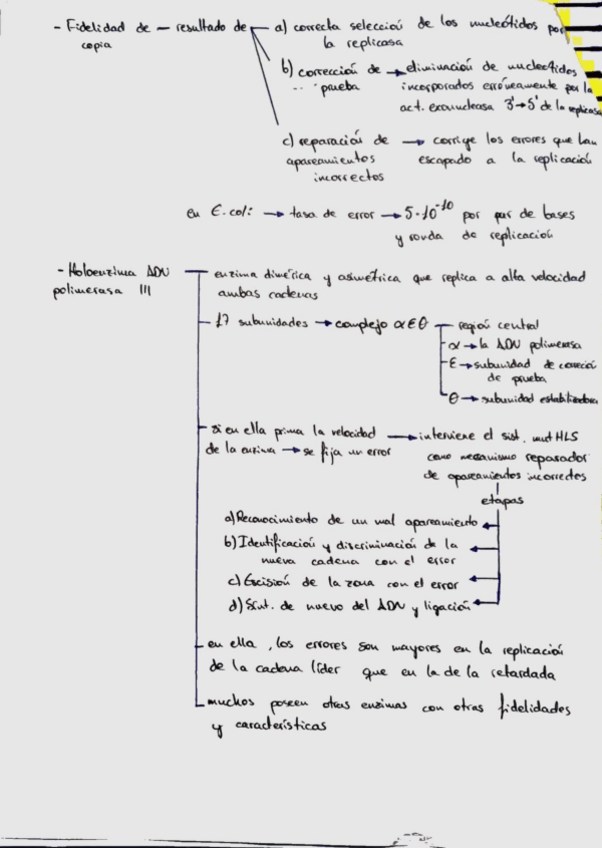 - Fidelidad de — resultado de — a) correcta selección de los nucleótidos por
copia la replicasa
b) corrección de → eliminación de nucleótidos
prueba incorporados erróneamente por la
act. exonucleasa 3'→5' de la replicasa
c) reparación de → corrige los errores que han
apareamientos escapado a la replicación
incorrectos
en E. coli: → tasa de error → 5·10⁻¹⁰ por par de bases
y ronda de replicación
- Holoenzima ADN — enzima dimérica y asimétrica que replica a alta velocidad
polimerasa III ambas cadenas
17 subunidades → complejo αεθ — región central
α → la ADN polimerasa
ε → subunidad de corrección
de prueba
θ → subunidad estabilizadora
si en ella prima la velocidad → interviene el sist. mutHLS
de la enzima → se fija un error como mecanismo reparador
de apareamientos incorrectos
etapas
a) Reconocimiento de un mal apareamiento
b) Identificación y discriminación de la
nueva cadena con el error
c) Escisión de la zona con el error
d) Sínt. de nuevo del ADN y ligación
en ella, los errores son mayores en la replicación
de la cadena líder que en la de la retardada
muchos poseen otras enzimas con otras fidelidades
y características